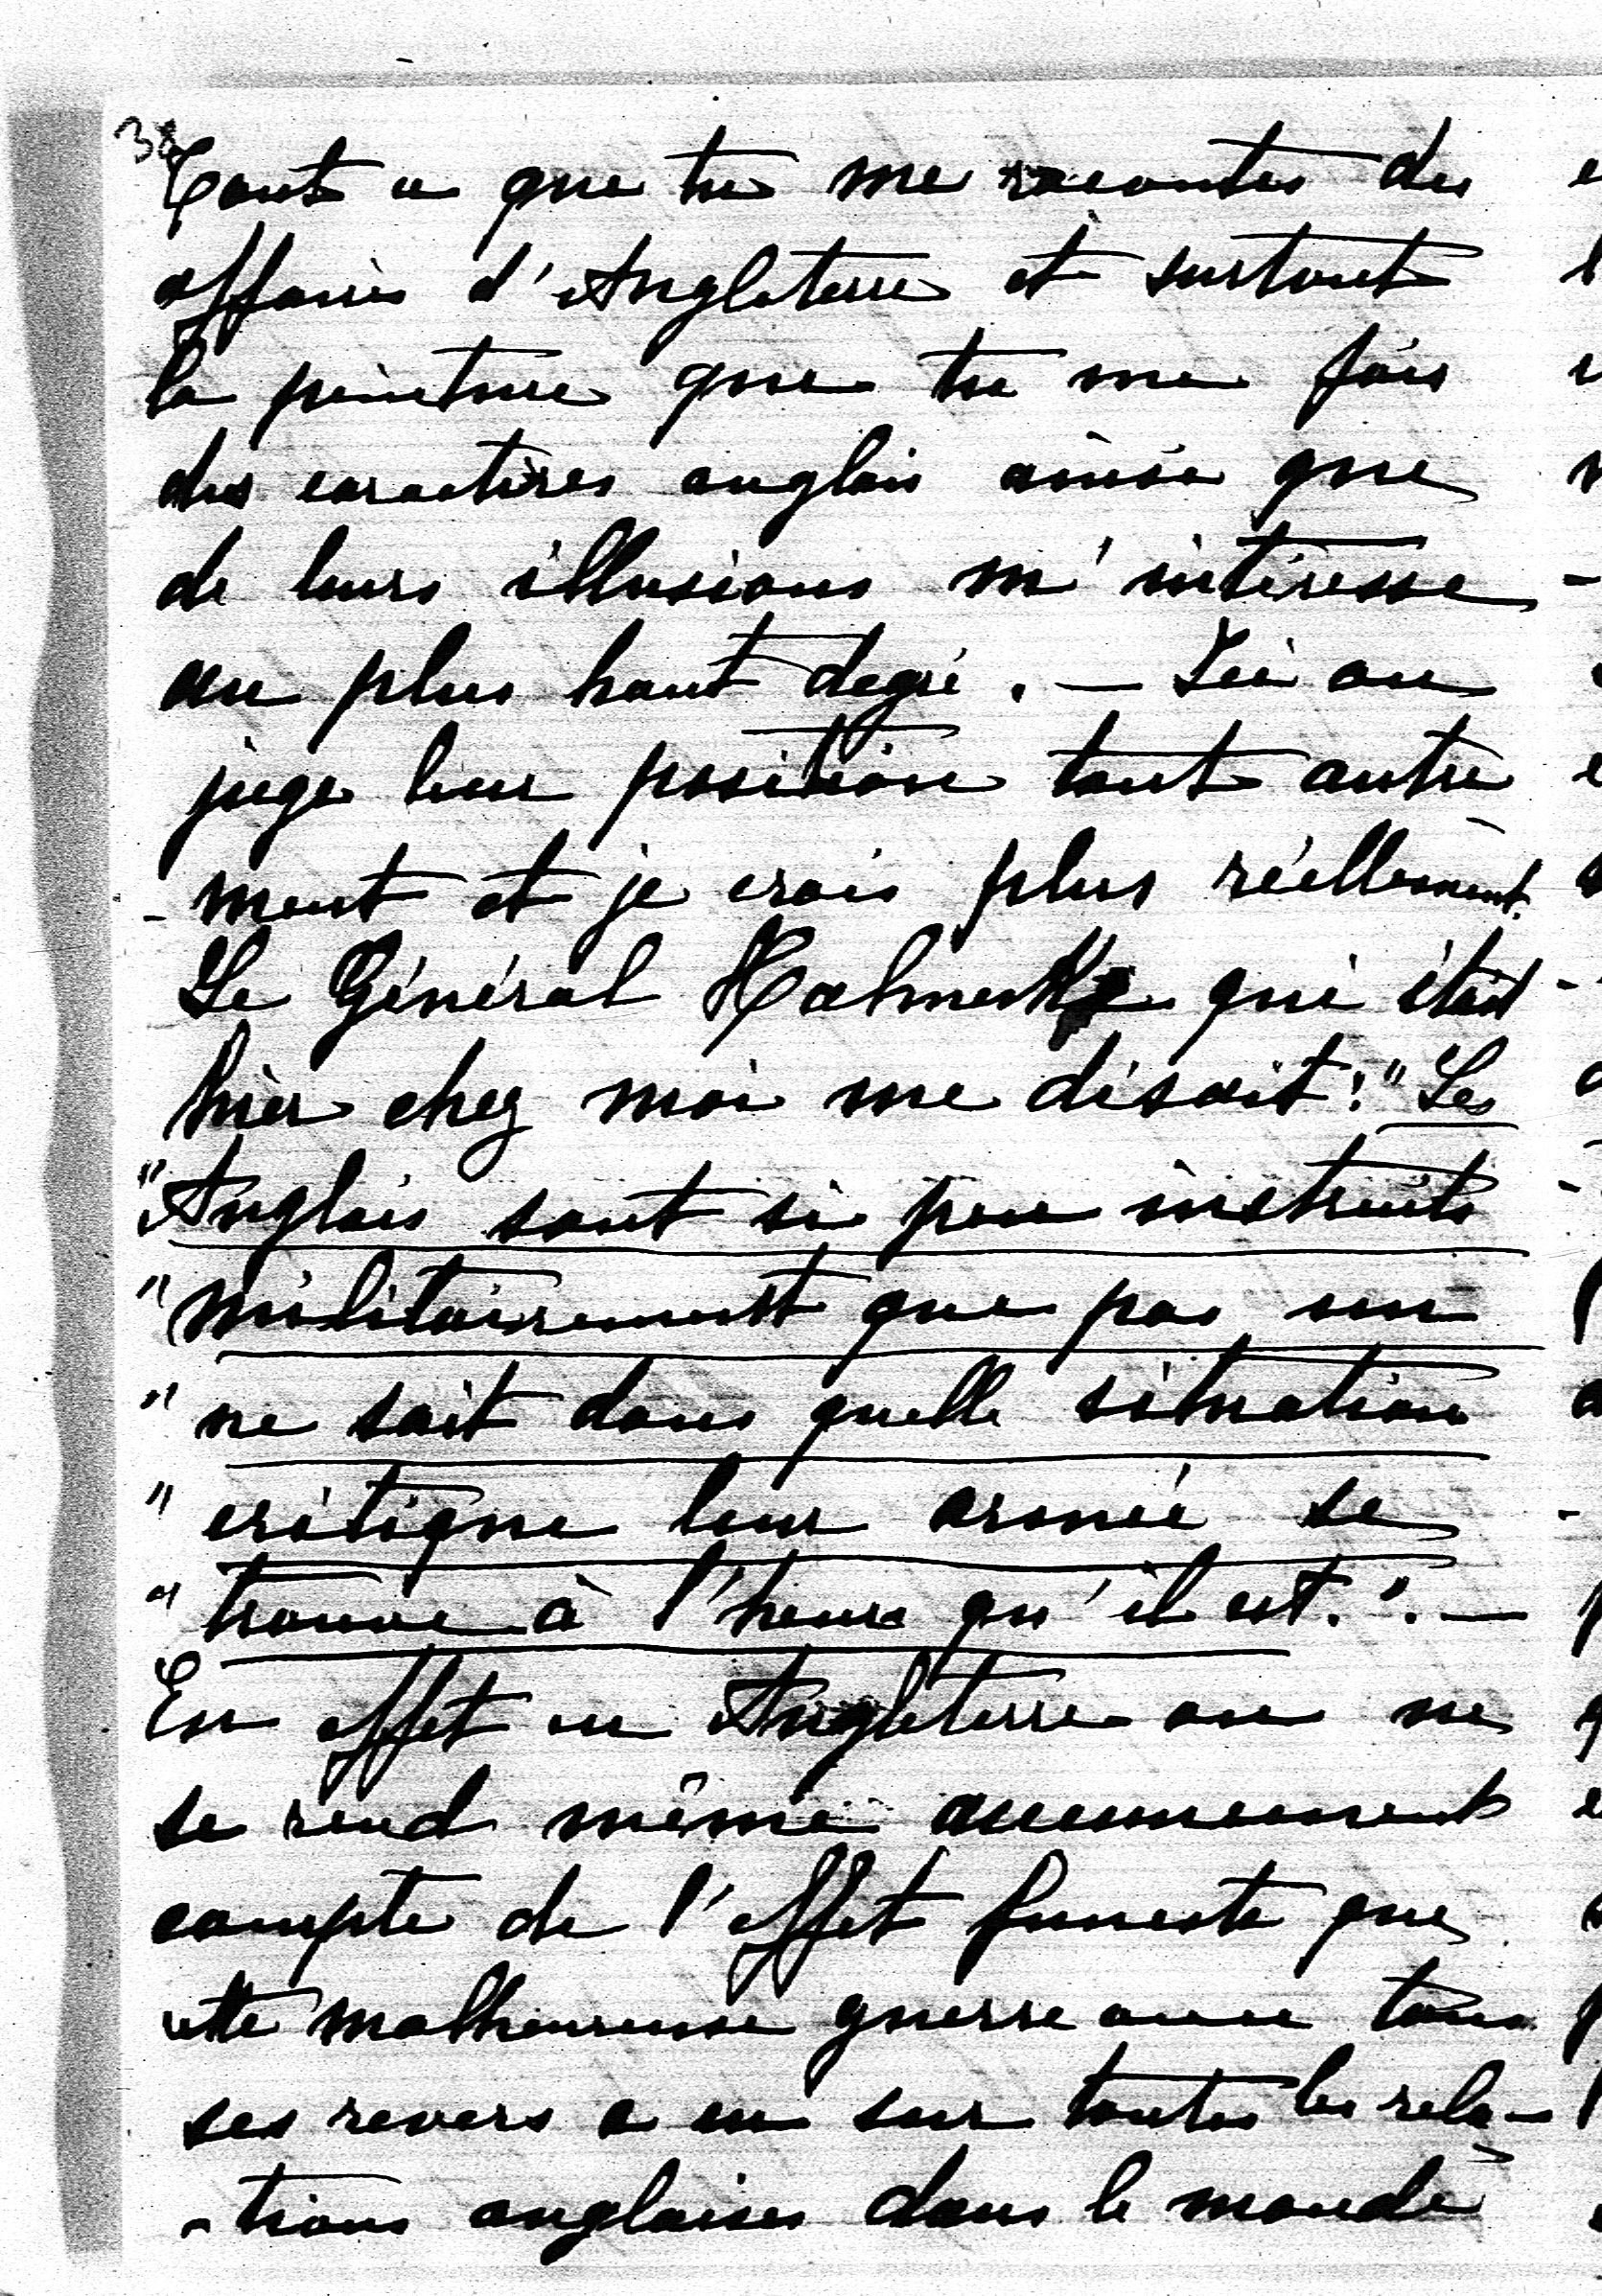 38
Tout ce que tu me racontes des
affaires d'Angleterre et surtout
la peinture que tu me fais
des caractères anglais ainsi que
de leurs illusions m'intéresse
au plus haut degré. — Ici on
juge leur position tout autre
- ment et je crois plus réellement.
Le Général qui était
hier chez moi me disait: "Les
"Anglais sont si peu instruits
"militairement que pas un
"ne sait dans quelle situation
"critique leur armée se
"trouve à l'heure qu'il est.". —
En effet en Angleterre on ne
se rend même aucunement
compte de l'effet funeste que
cette malheureuse guerre avec tous
ses revers a eu sur toutes les rela-
-tions anglaises dans le monde